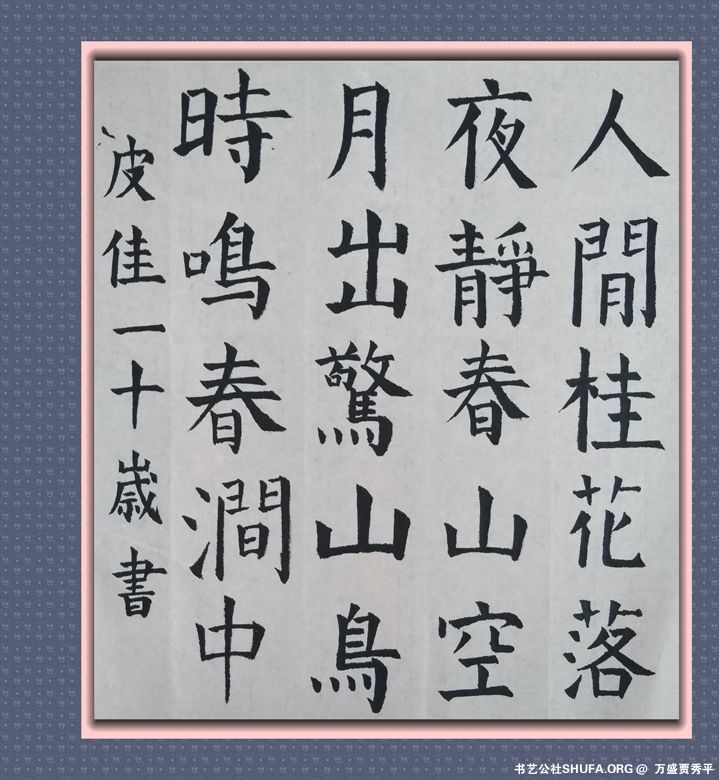 人閒桂花落
夜靜春山空
月出驚山鳥
時鳴春澗中
皮佳一十歲書
书艺公社SHUFA.ORG @ 万盛贾秀平